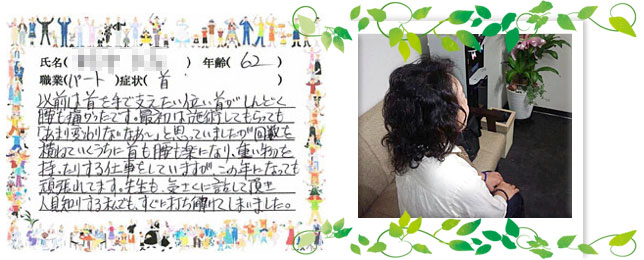 氏名( ) 年齢( 62 )
職業(パート)症状( 首 )
以前は首を手で支えたい位い首がしんどく
腰も痛かったです。最初は施術してもらっても
「あまり変わりないなあ〜」と思っていましたが回数を
積ねていくうちに首も腰も楽になり、重い物を
持ったりする仕事をしていますが、この年になっても
頑張れてます。先生も、気さくに話して頂き
人見知りする私でも、すぐに打ち解けてしまいました。